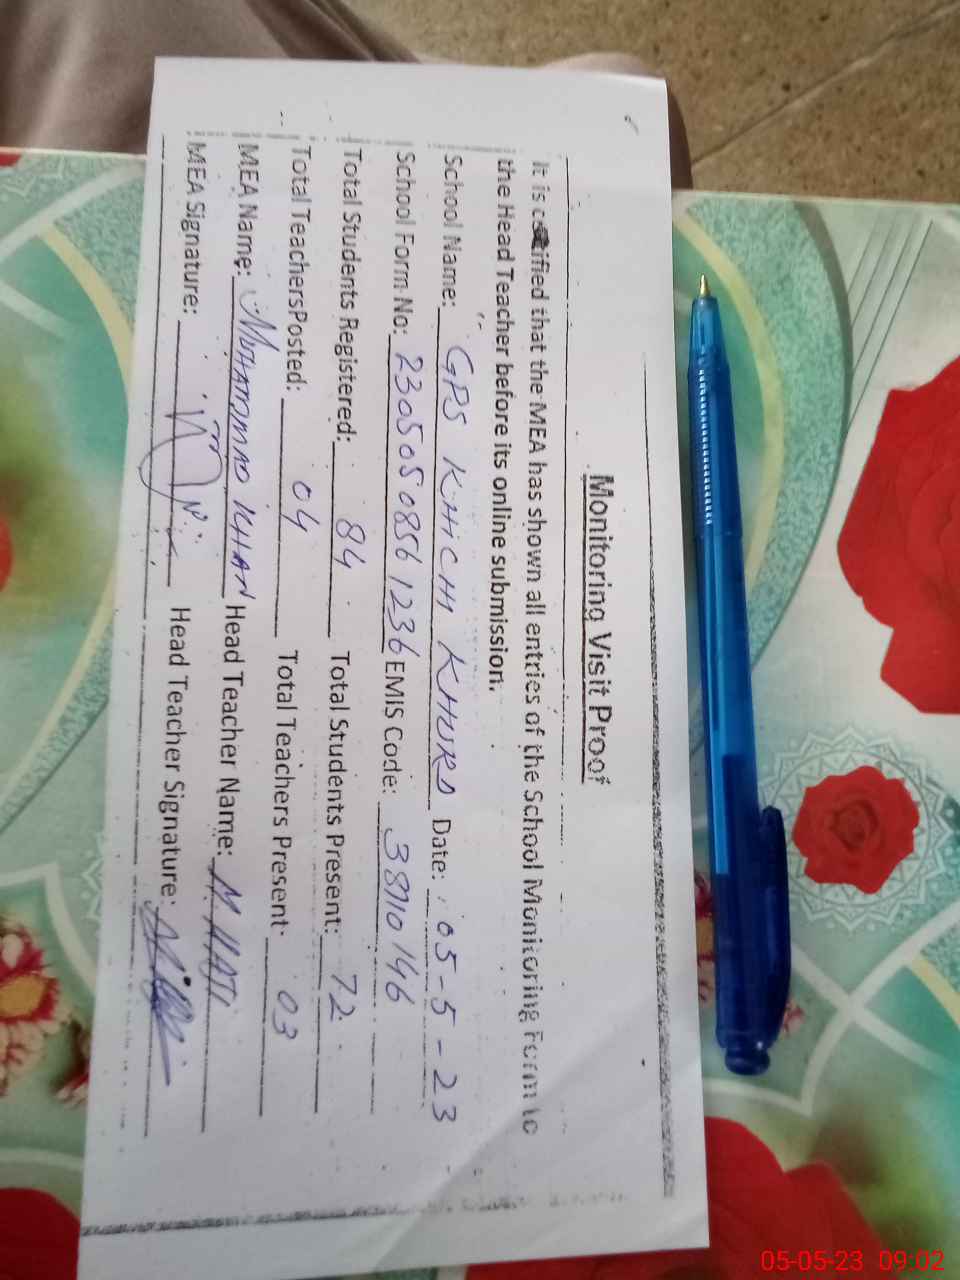 Monitoring Visit Proof
It is certified that the MEA has shown all entries of the School Monitoring Form to
the Head Teacher before its online submission.
School Name: GPS KHICHI KHURD Date: 05-5-23
School Form No: 23050508561236 EMIS Code: 38710146
Total Students Registered: 84 Total Students Present: 72
Total TeachersPosted: 04 Total Teachers Present: 03
MEA Name: MUHAMMAD KHAN Head Teacher Name: M. HATI
MEA Signature: Head Teacher Signature:
05-05-23 09:02